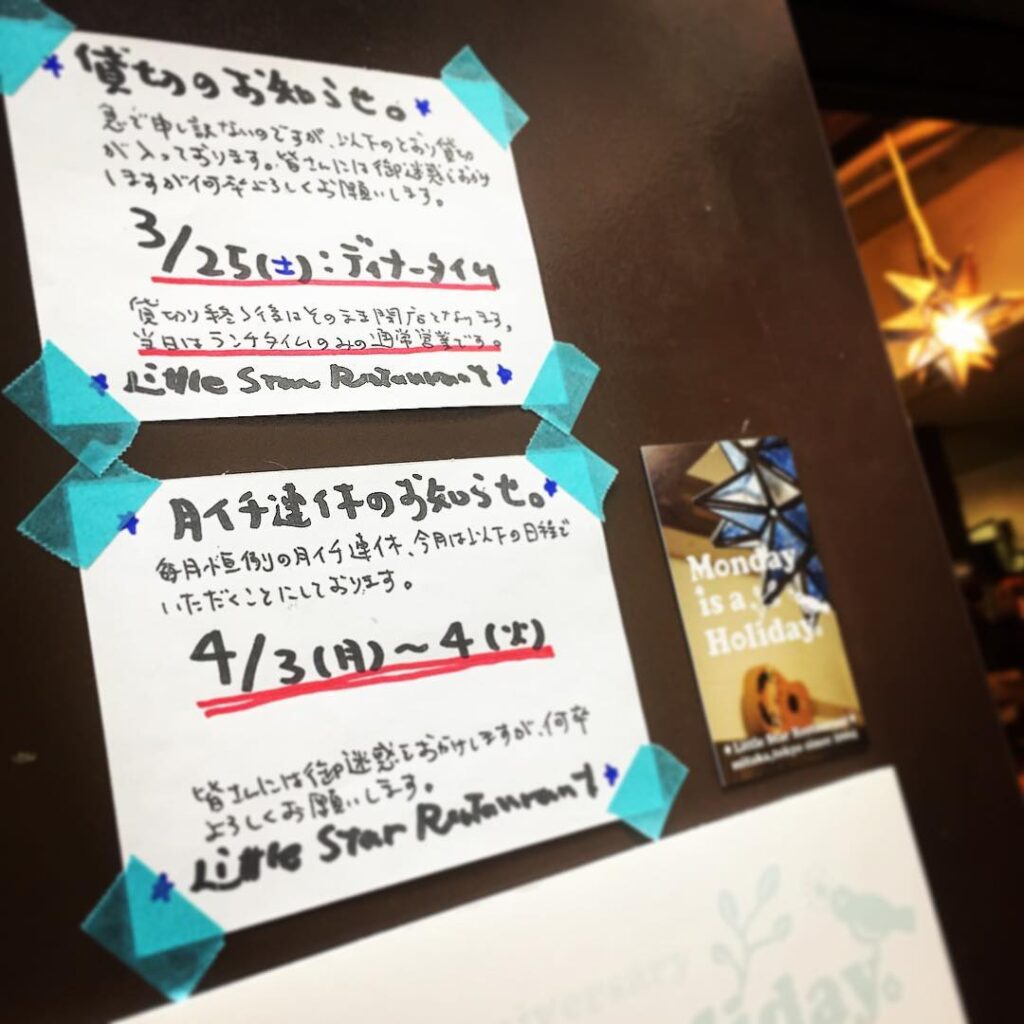 貸切のお知らせ。
急で申し訳ないのですが、以下のとおり貸切
が入っております。皆さんには御迷惑をおかけ
しますが何卒よろしくお願いします。
3/25(土):ディナータイム
貸切り終了後はそのまま閉店となります。
当日はランチタイムのみの通常営業です。
Little Star Restaurant
月イチ連休のお知らせ。
毎月恒例の月イチ連休、今月は以下の日程で
いただくことにしております。
4/3(月)~4(火)
皆さんには御迷惑をおかけしますが、何卒
よろしくお願いします。
Little Star Restaurant
Monday
is a
Holiday.
Little Star Restaurant
mitaka, tokyo since 2004
niversary
liday.